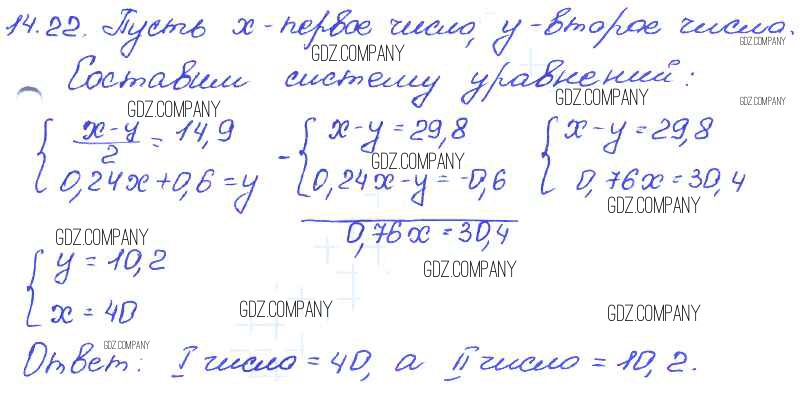 14.22. Пусть x - первое число, y - второе число.
GDZ.COMPANY GDZ.COMPANY
Составим систему уравнений:
GDZ.COMPANY GDZ.COMPANY GDZ.COMPANY
{ (x-y)/2 = 14,9 - { x-y = 29,8 { x-y = 29,8
GDZ.COMPANY
0,24x+0,6 = y 0,24x-y = -0,6 0,76x = 30,4
GDZ.COMPANY
0,76x = 30,4
GDZ.COMPANY
{ y = 10,2
GDZ.COMPANY
x = 40
GDZ.COMPANY GDZ.COMPANY
GDZ.COMPANY
Ответ: I число = 40, а II число = 10,2.